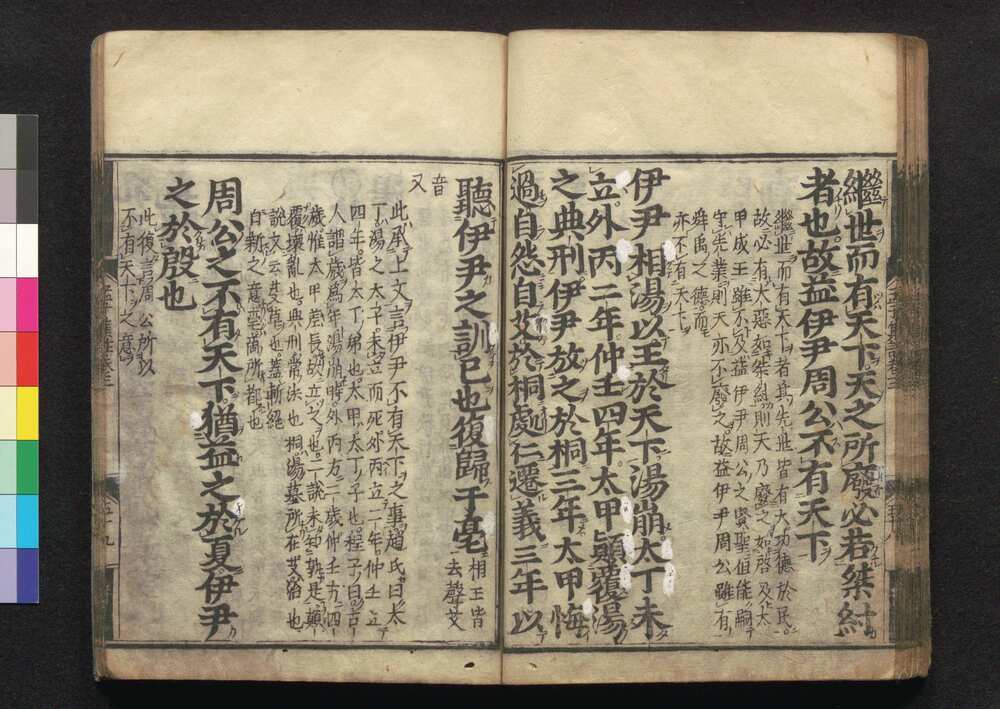 繼世而有天下天之所廢必若桀紂
者也故益伊尹周公不有天下
繼世而有天下者其先世皆有大功德於民
故必有大惡如桀紂則天乃廢之如啓及太
甲成王雖不及益伊尹周公之賢聖但能嗣
守先業則天亦不廢之故益伊尹周公雖有
舜禹之德而
亦不有天下
伊尹相湯以王於天下湯崩太丁未
立外丙二年仲壬四年太甲顚覆湯
之典刑伊尹放之於桐三年太甲悔
過自怨自艾於桐處仁遷義三年以
聽伊尹之訓己也復歸于亳
相王皆
去聲艾
音
又
此承上文言伊尹不有天下之事趙氏曰太
丁湯之太子未立而死外丙立二年仲壬立
四年皆太丁弟也太甲太丁子也程子曰古
人謂歲爲年湯崩時外丙方二歲仲壬方四
歲惟太甲差長故立之也二說未知孰是顚
覆壞亂也典刑常法也桐湯墓所在艾治也
說文云芟草也蓋斬絕
自新之意亳商所都也
周公之不有天下猶益之於夏伊尹
之於殷也
此復言周公所以
不有天下之意